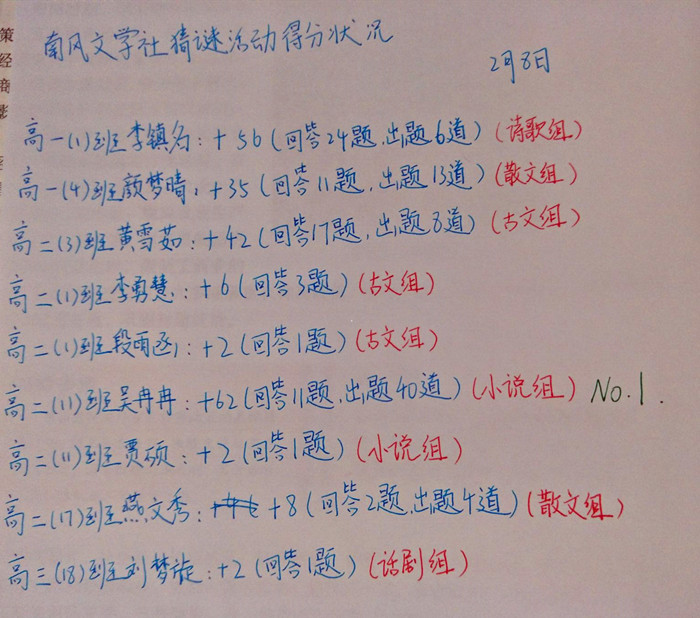 南风文学社猜谜活动得分状况
2月8日
高一(1)班李镇名:+56(回答24题,出题6道)(诗歌组)
高一(4)班颜梦晴:+35(回答11题,出题13道)(散文组)
高二(3)班黄雪茹:+42(回答17题,出题8道)(古文组)
高二(1)班李勇慧:+6(回答3题)(古文组)
高二(1)班段雨函:+2(回答1题)(古文组)
高二(11)班吴冉冉:+62(回答11题,出题40道)(小说组) No.1.
高二(11)班贾硕:+2(回答1题)(小说组)
高二(17)班燕文秀:+8(回答2题,出题4道)(散文组)
高三(18)班刘梦旋:+2(回答1题)(话剧组)
策
经
商